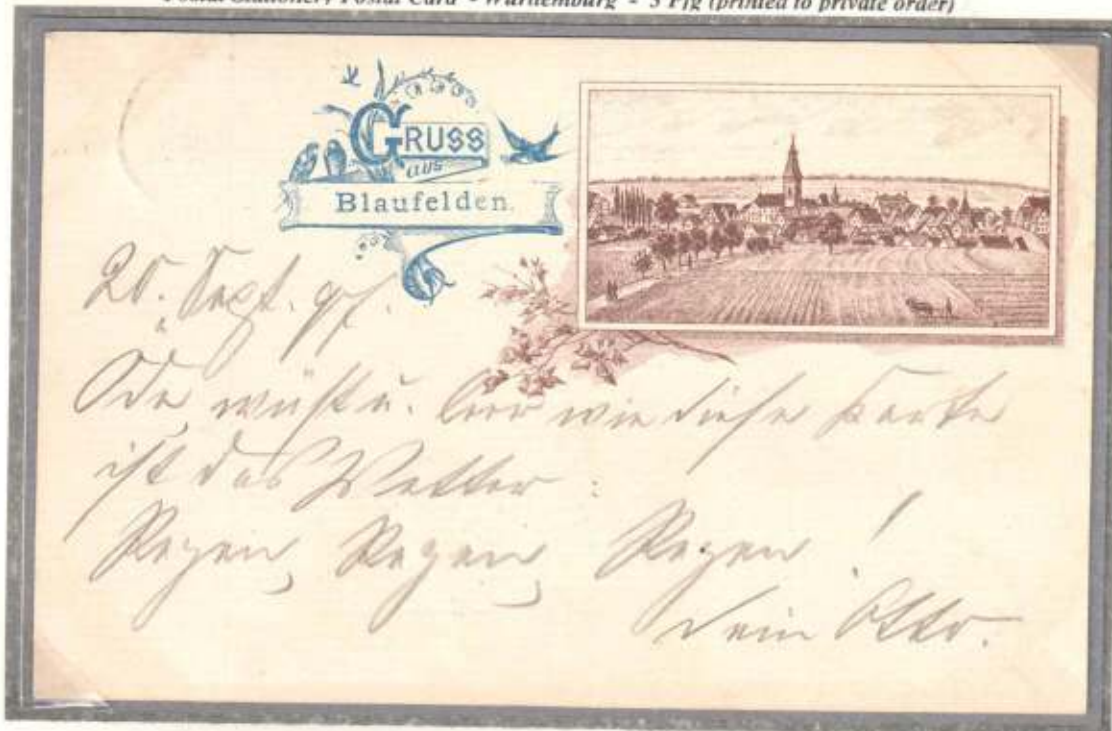 Postal Stationery Postal Card - Württemburg - 5 Pfg (printed to private order)
GRUSS
aus
Blaufelden.
20. Sept. 97.
Öde, wüst u. leer wie diese Karte
ist das Wetter:
Regen, Regen, Regen!
Dein Otto.